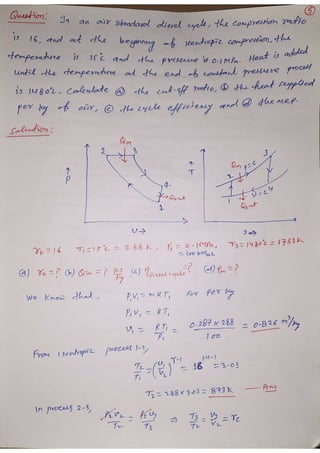 5
Question: In an air standard diesel cycle, the compression ratio
is 16, and at the beginning of isentropic compression, the
temperature is 15°c and the pressure is 0.1MPa. Heat is added
until the temperature at the end of constant pressure process
is 1480°c. Calculate ⓐ the cut-off ratio, ⓑ the heat supplied
per kg of air, ⓒ the cycle efficiency and ⓓ the mep.
Solution:
Qin
2 3
↑
P
4
Qout
1
V→
↑
T
3
Qin
P=C
2
4
V=C
1
Qout
S→
T1=15°c = 288 K, P1 = 0.1MPa, T3=1480°c = 1753K
= 100 kN/m2
ⓐ rc=? ⓑ Qin = ? kJ/kg ⓒ ηDiesel cycle=? ⓓ Pm=?
We know that, P1V1=mRT1 For Per kg
P1V1 = RT1
V1 = RT1/P1 = 0.287×288/100 = 0.826 m3/kg
From isentropic process 1-2,
T2/T1 = (V1/V2)^γ-1 = 16^ = 3.03
T2=288×3.03 = 873K — Ans
In process 2-3,
P2V2/T2 = P3V3/T3 ⇒ T3/T2 = V3/V2 = rc